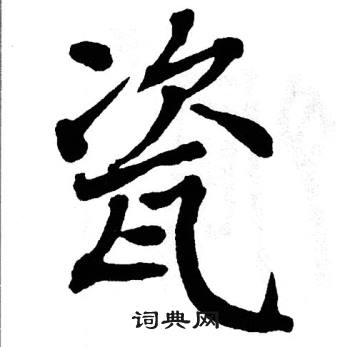 瓷
词典网